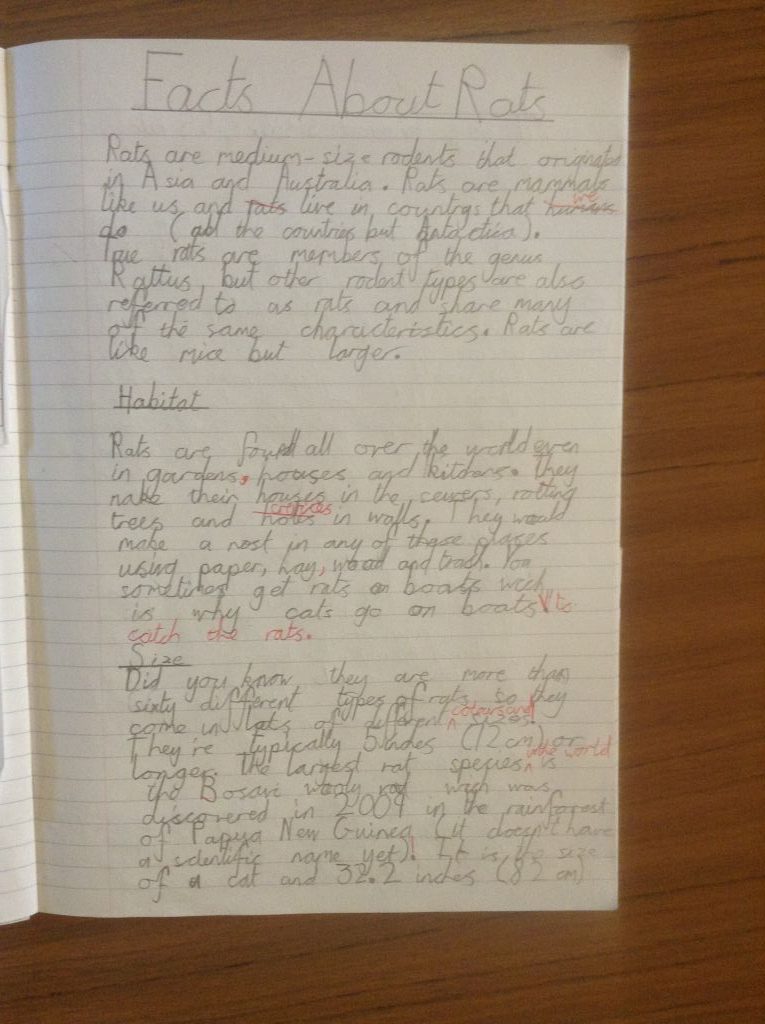 Facts About Rats
Rats are medium-size rodents that originated
in Asia and Australia. Rats are mammals
we
like us and rats live in countrys that humans
do (all the countries but Antarctica).
True rats are members of the genus
Rattus, but other rodent types are also
referred to as rats and share many
of the same characteristics. Rats are
like mice but larger.
Habitat
Rats are found all over the world even
in gardens, houses and kitchens. They
make their houses in the sewers, rotting
crevices
trees and holes in walls. They would
make a nest in any of those places
using paper, hay, wood and trash. You
sometimes get rats on boats wich
is why cats go on boats to
catch the rats.
Size
Did you know they are more than
sixty different types of rats, so they
colours and
come in lots of different sizes.
They're typically 5 inches (12 cm) or
in the world
longer. The largest rat species is
the Bosavi wooly rat wich was
discovered in 2009 in the rainforest
of Papua New Guinea (it doesn't have
a scientific name yet)! It is the size
of a cat and 32.2 inches (82 cm)